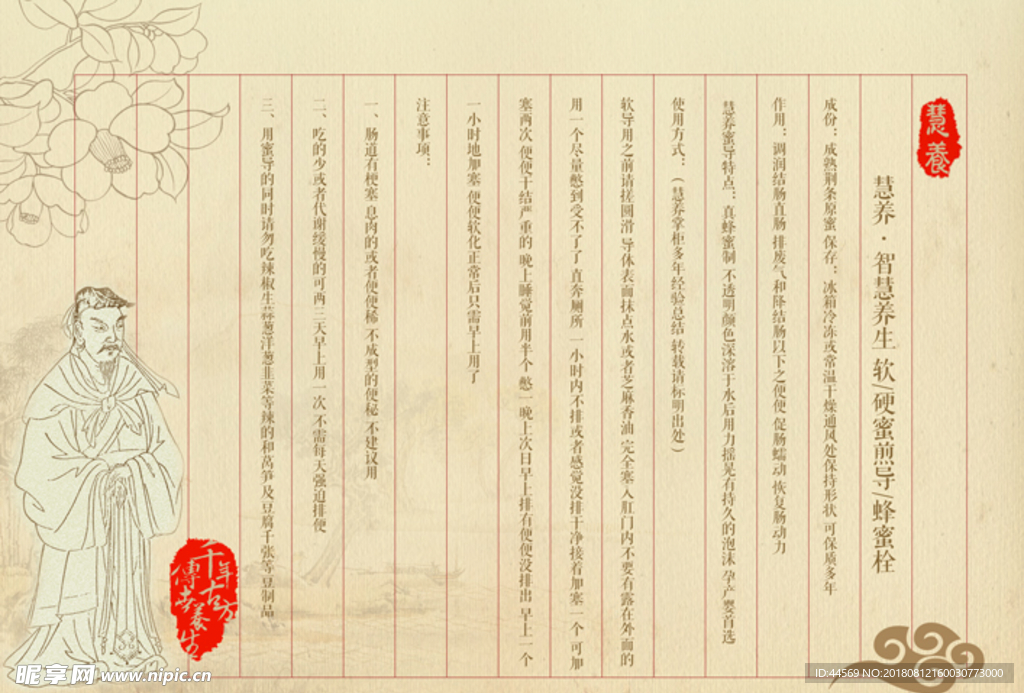 慧養
慧养·智慧养生 软/硬蜜煎导/蜂蜜栓
成份：成熟荆条原蜜 保存：冰箱冷冻或常温干燥通风处保持形状 可保质多年
作用：调润结肠直肠 排废气和降结肠以下之便便 促肠蠕动 恢复肠动力
慧养蜜导特点：真蜂蜜制 不透明颜色深溶于水后用力摇晃有持久的泡沫 孕产婴首选
使用方式：（慧养掌柜多年经验总结 转载请标明出处）
软导用之前请搓圆滑 导体表面抹点水或者芝麻香油 完全塞入肛门内不要有露在外面的
用一个尽量憋到受不了了 直奔厕所 一小时内不排或者感觉没排干净接着加塞一个 可加
塞两次 便便干结严重的 晚上睡觉前用半个 憋一晚上次日早上排有便便没排出 早上一个
一小时地加塞 便便软化正常后只需早上用了
注意事项：
一、肠道有梗塞 息肉的或者便便稀 不成型的便秘 不建议用
二、吃的少或者代谢缓慢的可两三天早上用一次 不需每天强迫排便
三、用蜜导的同时请勿吃辣椒生蒜葱洋葱韭菜等辣的和莴笋及豆腐千张等豆制品
千年古方
傳世養生
昵享网 www.nipic.cn
ID:44569 NO:20180812160030773000